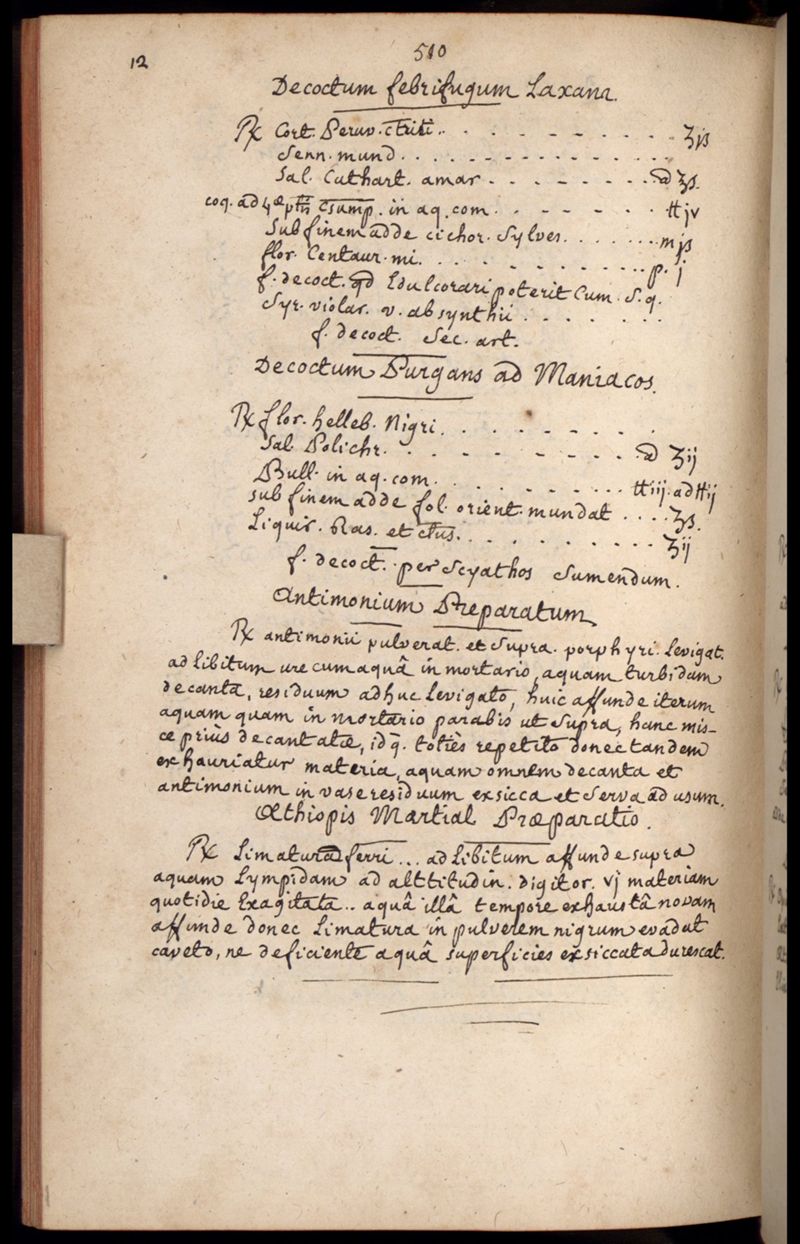 12
510
Decoctum febrifugum Laxans.
℞ Cort. Peruv. ctriti. . . . . . . . . . ℥jß
Senn. mund. . . . . . . . . . . .
Sal. Cathart. amar . . . . . . . ā ℥ß.
coq. ad 4æ ptis csump. in aq. com. . . . . . . ℔jv
Sub finem adde cichor. Sylves. . . . . . . mjß
flor. Centaur. mi. . . . . . . . . . . p. j
f. decoct. qd Edulcorari poterit Cum. S. q.
Syr. violar. v. absynthii . . . . . . .
f. decoct. Sec. art.
Decoctum Purgans ad Maniacos.
℞ flor. helleb. Nigri. . . . . . . .
Sal. Polichr. . . . . . . . . ā ʒij
Bull. in aq. com. . . . . . . . ℔iij. ad ℔ij
sub finem adde fol. orient. mundat . . . . ℥ß.
Liquir. Ras. et ctus. . . . . . . . . . ʒij
f. decoct. per Scyathos Sumendum.
Antimonium Præparatum
℞ antimonii pulverat. et Supra. porphyri. Levigat.
ad Libitum ure cum aquâ in mortario, aquam turbidam
decanta, residuum adhuc Levigato, huic affunde iterum
aquam quam in mortario parabis ut Supra, hanc mis-
ce priùs decantatæ, idq. totiès repetito donec tandem
exhauriatur materia, aquam omnem decanta et
antimonium in vase residuum exsicca et Serva ad usum.
Æthiopis Martial Præparatio.
℞ Limaturæ ferri . . . ad Libitum affunde supra
aquam Lympidam ad alttitudin. digitor. vj materiam
quotidie Exagitata . . aquâ illâ tempore exhaustâ novam
affunde donec Limatura in pulverem nigrum evadat
caveto, ne deficiente aquâ superficies exsiccata durescat.